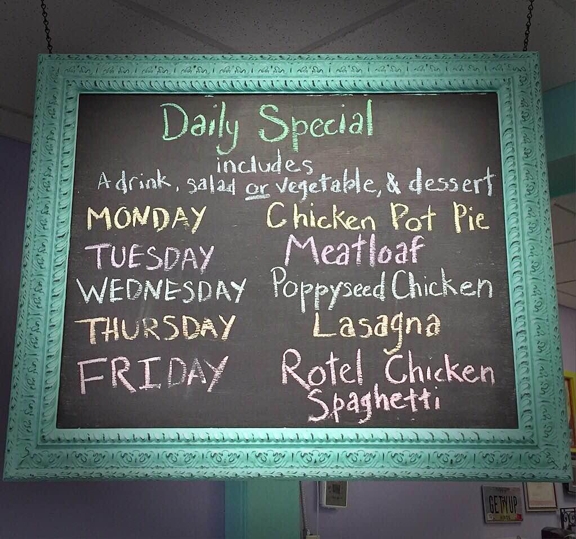 Daily Special
includes
A drink, salad or vegetable, & dessert
MONDAY Chicken Pot Pie
TUESDAY Meatloaf
WEDNESDAY Poppyseed Chicken
THURSDAY Lasagna
FRIDAY Rotel Chicken
Spaghetti
GET'N UP